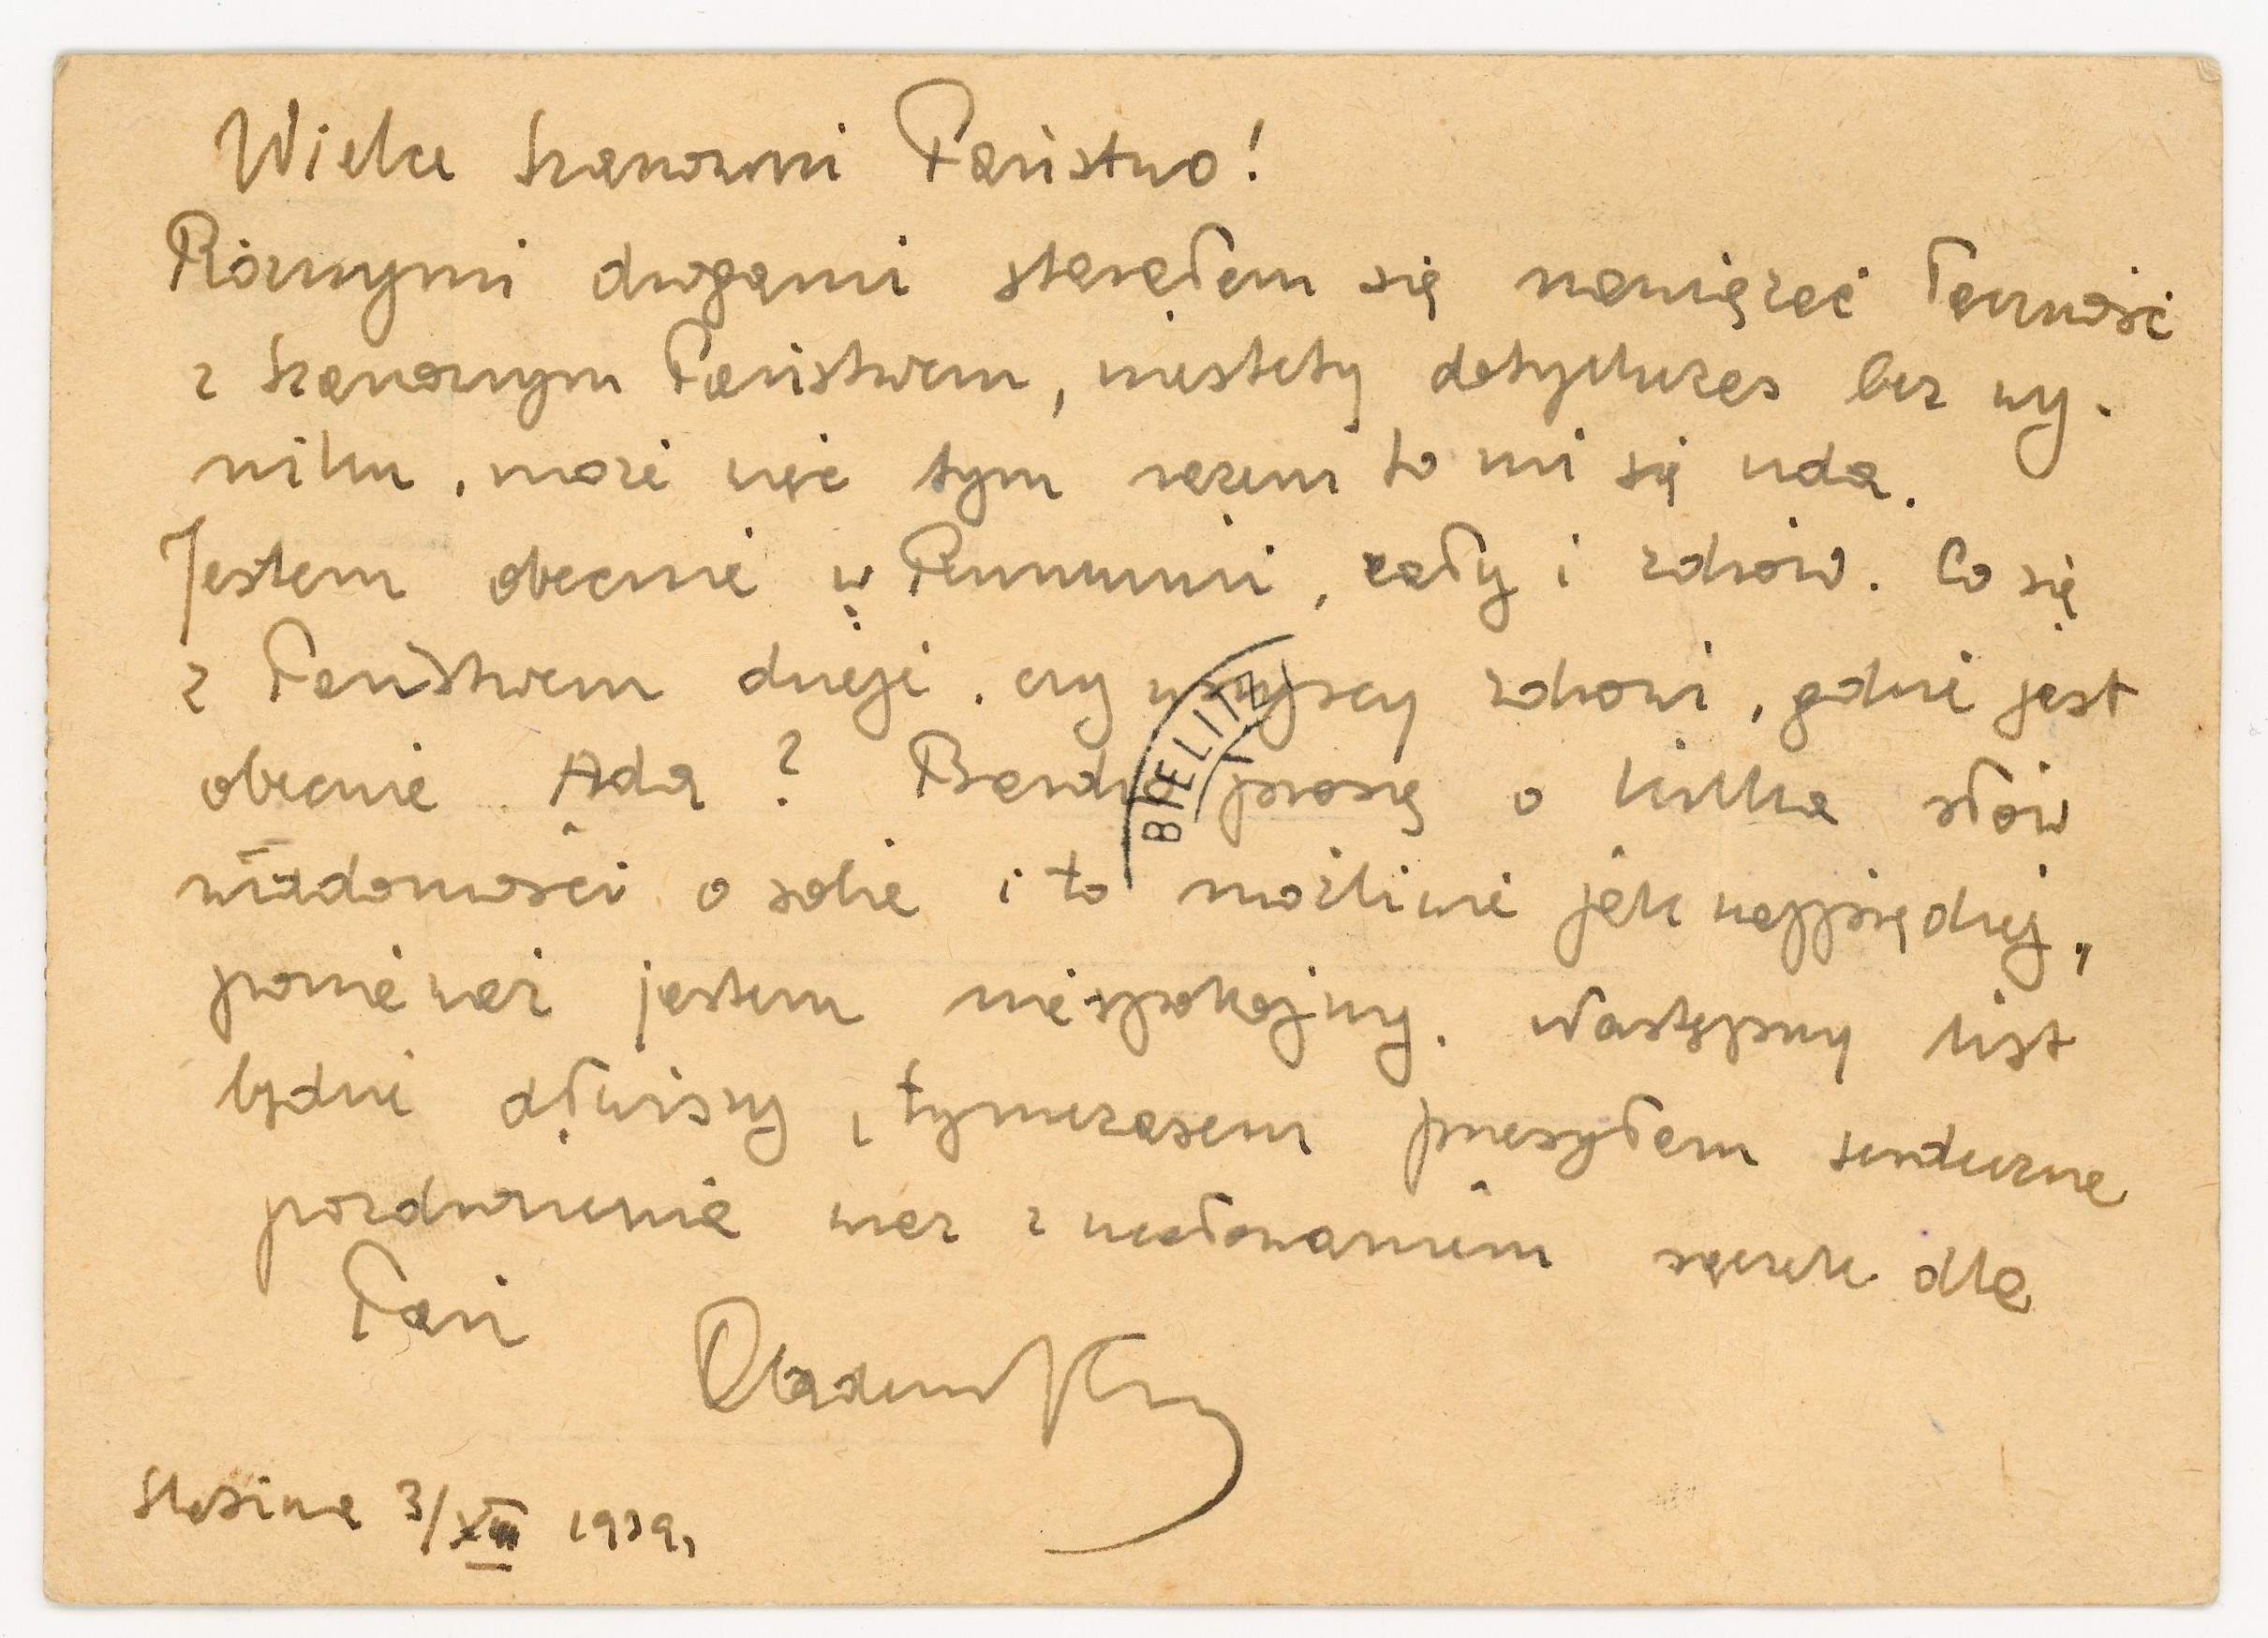 Wielce Szanowni Państwo!
Różnymi drogami starałem się nawiązać łączność
z Szanownym Państwem, niestety dotychczas bez wy-
niku, może więc tym razem to mi się uda.
Jestem obecnie w Rumunii, cały i zdrów. Co się
z Państwem dzieje, czy wszyscy zdrowi, gdzie jest
obecnie Ada? Bardzo proszę o kilka słów
wiadomości o sobie i to możliwie jak najprędzej,
ponieważ jestem niespokojny. Następny list
będzie dłuższy, tymczasem przesyłam serdeczne
pozdrowienia wraz z ucałowaniem rączek dla
Pani
Slasina 3/XII 1939,
BIELITZ